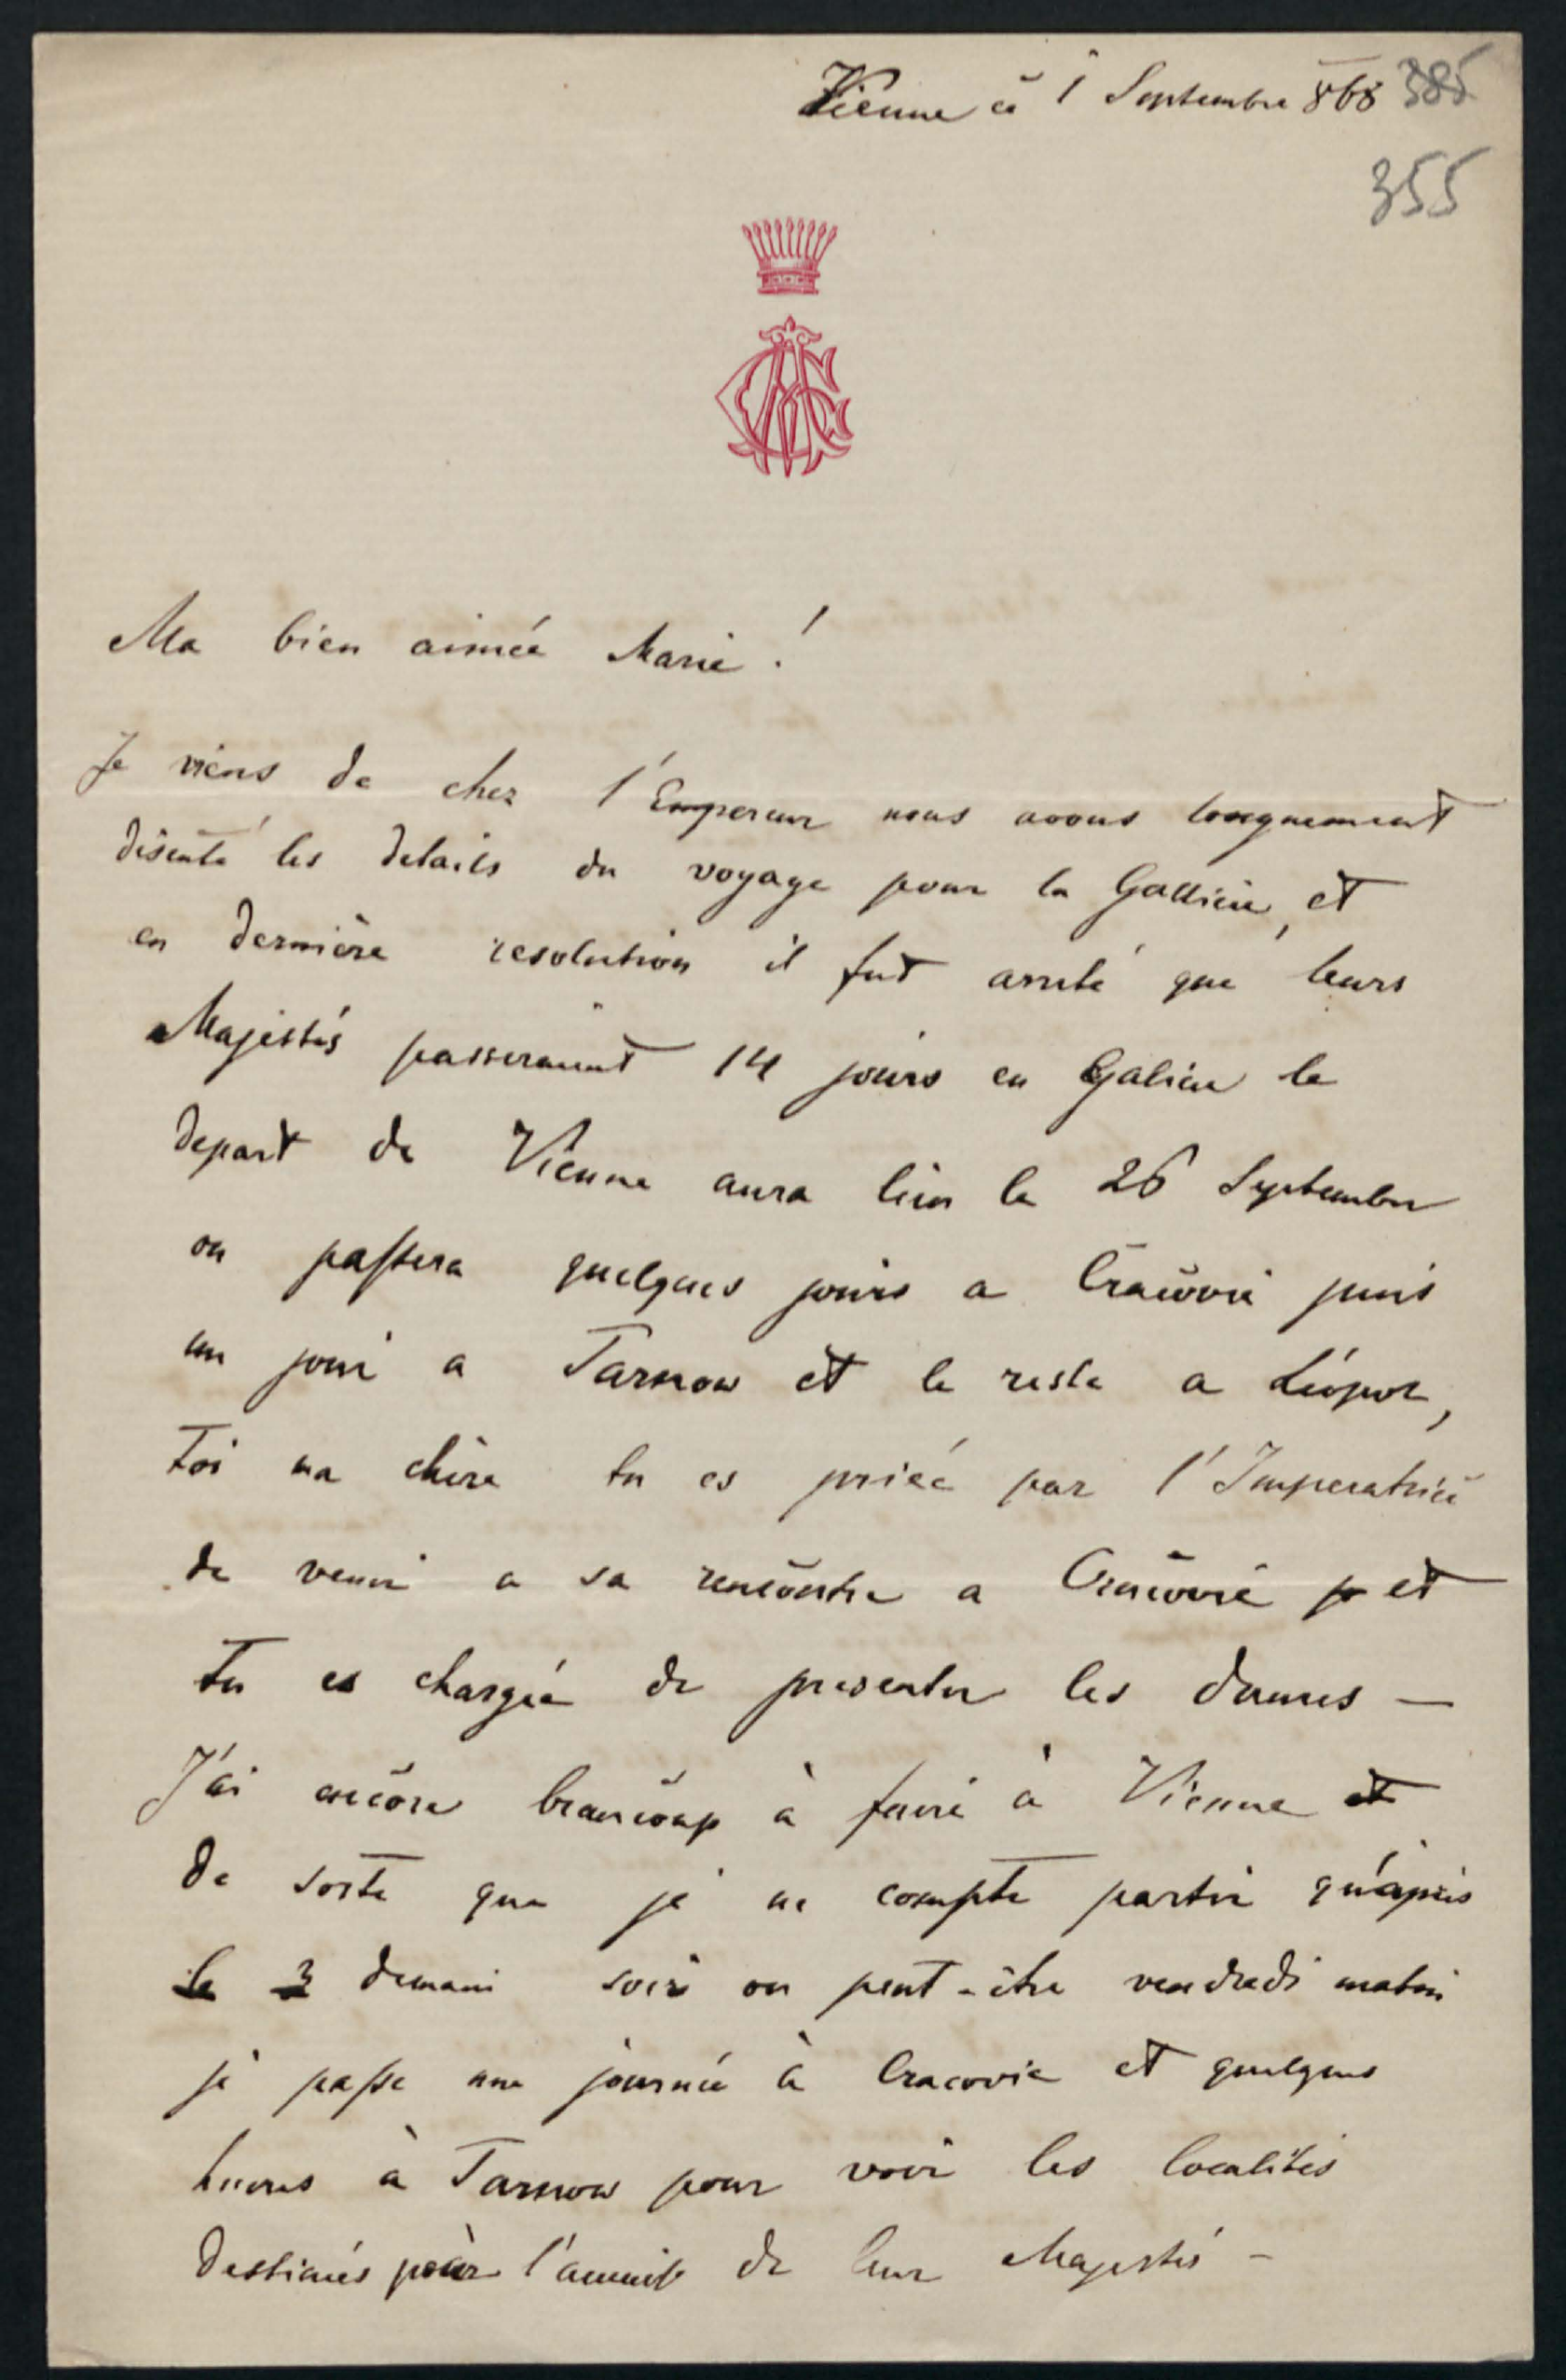 Vienne ce 1 Septembre 868 385
355
Ma bien aimée Marie!
Je viens de chez l'Empereur nous avons longuement
discuté les details du voyage pour la Gallicie, et
en dernière resolution il fut arreté que leurs
Majestés passeraient 14 jours en Galicie le
depart de Vienne aura lieu le 26 Septembre
on passera quelques jours a Cracovie puis
un jour a Tarnow et le reste a Léopol,
Toi ma chère tu es priée par l'Imperatrice
de venir a sa rencontre a Cracovie et
tu es chargée de presenter les dames —
J'ai encore beaucoup à faire à Vienne et
de sorte que je ne compte partir qu'après
le 3 demain soir ou peut-être vendredi matin
je passe une journée à Cracovie et quelques
heures à Tarnow pour voir les localités
destinés pour l'arrivée de leur Majestés —